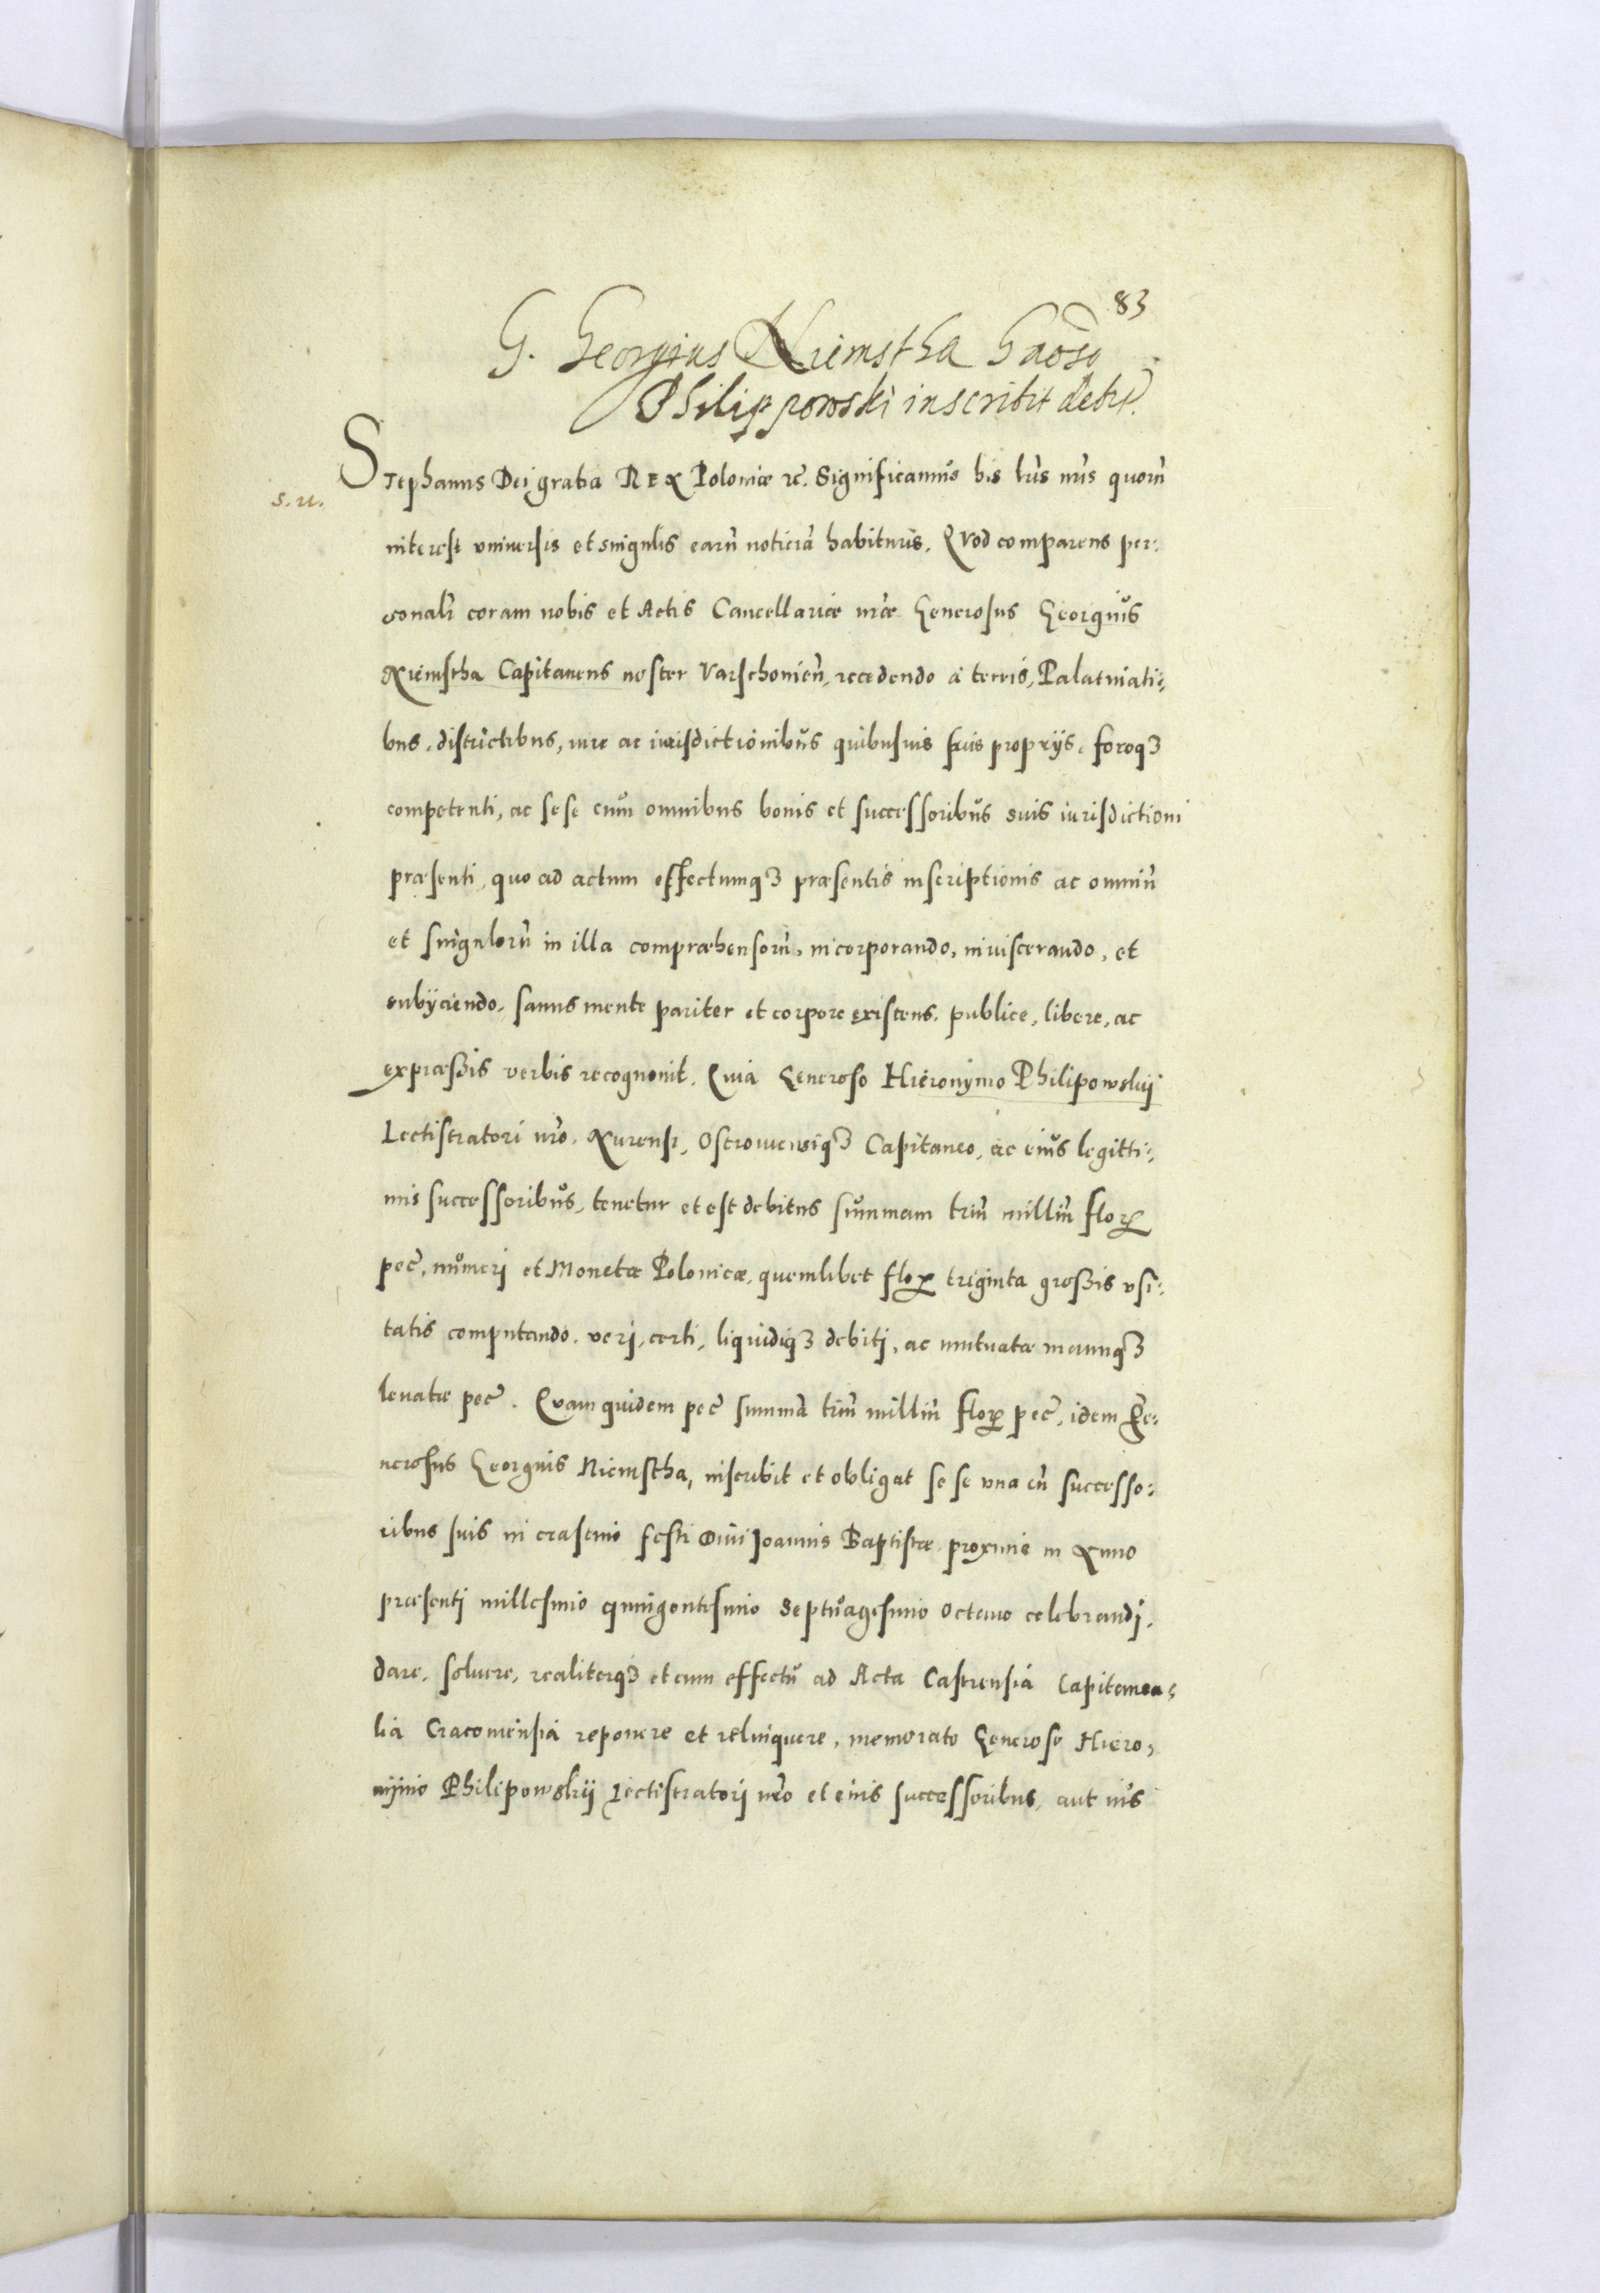 83
G. Georgius Niemstha Gnoso
Philippowski inscribit debit.
Stephanus Dei gratia REX Poloniæ etc. Significamus his lris nris quorũ
s. re.
interest vniuersis et singulis earũ noticiã habituris. Quod comparens per-
sonalr coram nobis et Actis Cancellariæ nræ Generosus Georgius
Niemstha Capitaneus noster Varschonień, recedendo a terris, Palatinati-
bus, districtibus, iure ac iurisdictionibus quibusuis suis proprijs, foroq3
competenti, ac sese cum omnibus bonis et successoribus suis iurisdictioni
præsenti, quo ad actum effectumq3 præsentis inscriptionis ac omniũ
et singulorũ in illa compræhensorũ, incorporando, inuiscerando, et
subijciendo, sanus mente pariter et corpore existens, publice, libere, ac
expræssis verbis recognouit. Quia Generoso Hieronymo Philipowskij
Lectistratori nro, Nurensi, Ostrouiensiq3 Capitaneo, ac eius legitti-
mis successoribus, tenetur et est debitus summam triũ milliũ flor
pec, numeri et Monetæ Polonicæ, quemlibet flor triginta grossis vsi-
tatis computando, veri, certi, liquidiq3 debiti, ac mutuatæ manuq3
leuatæ pec. Quam quidem pec summã triũ milliũ flor pec, idem Ge-
nerosus Georgius Niemstha, inscribit et obligat se se vna cũ successo-
ribus suis in crastino festi Diui Joannis Baptistæ proxime in Anno
præsenti millesimo quingentesimo Septuagesimo octauo celebrandi,
dare, soluere, realiterq3 et cum effectu ad Acta Castrensia Capitanea-
lia Cracouiensia reponere et relinquere, memorato Generoso Hiero-
nijmo Philipowskij Lectistratori nro et eius successoribus, aut nis